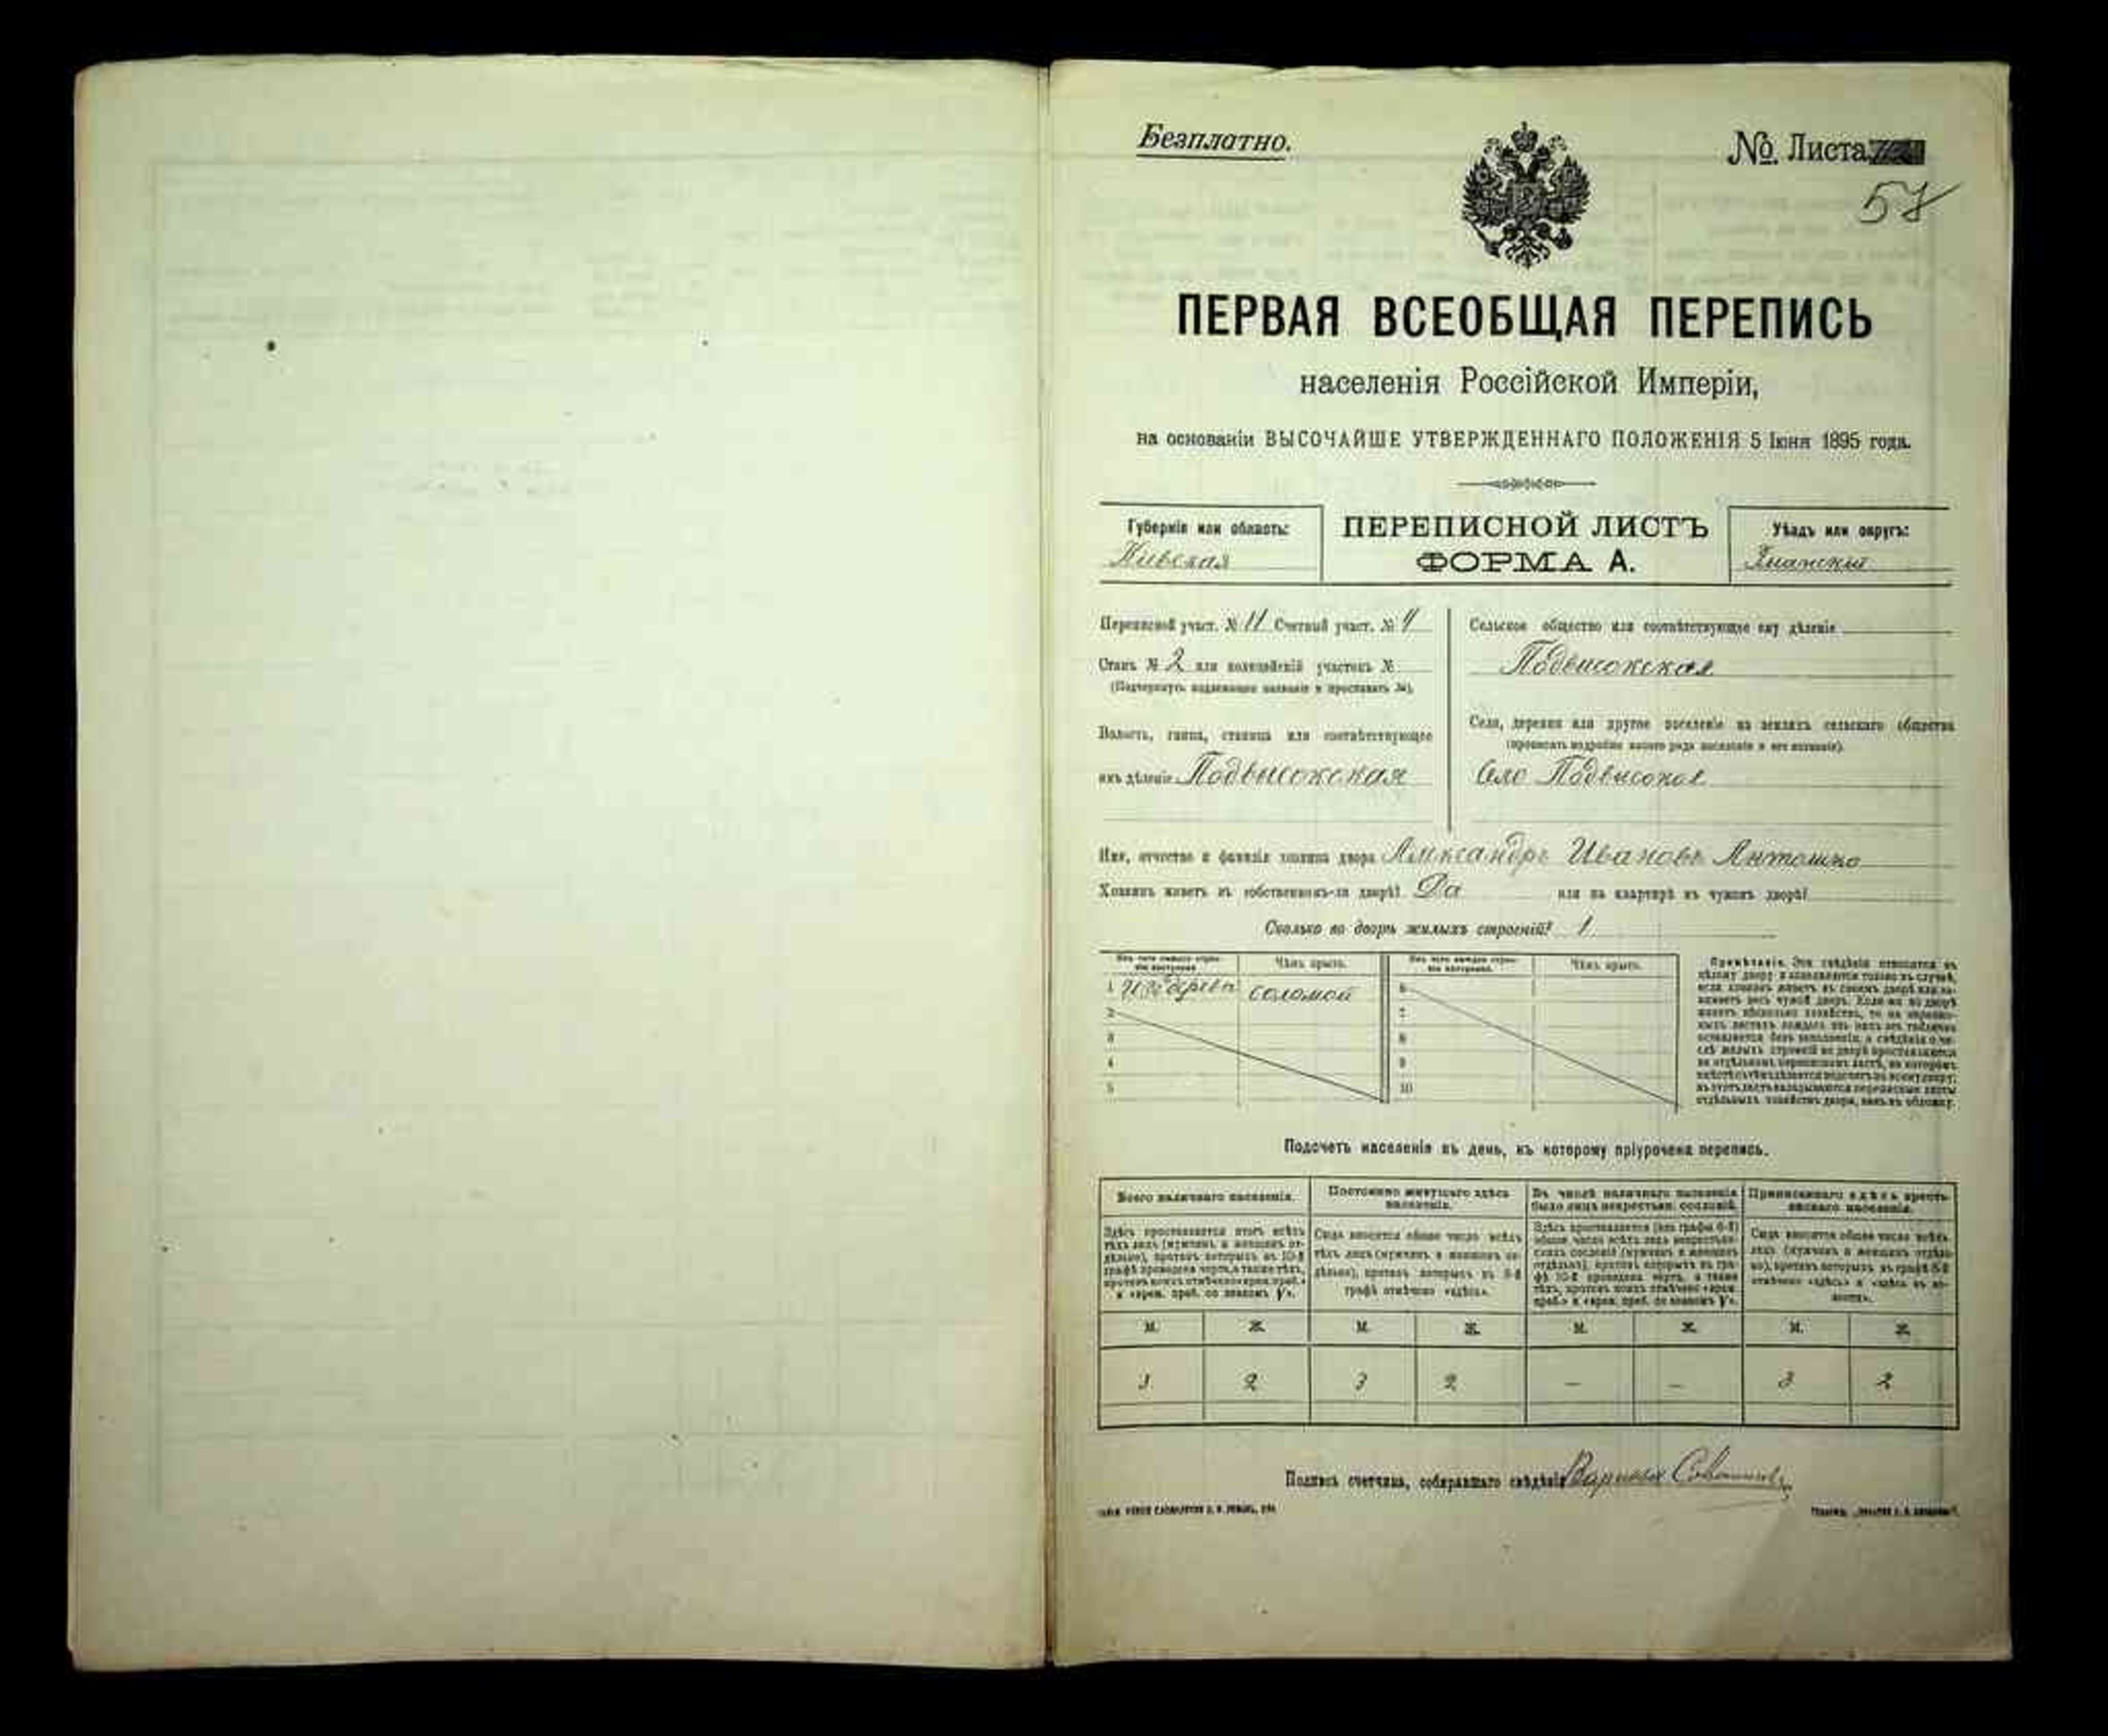 Безплатно.
№ Листа
ПЕРВАЯ ВСЕОБЩАЯ ПЕРЕПИСЬ
населенія Россійской Имперіи,
на основаніи ВЫСОЧАЙШЕ УТВЕРЖДЕННАГО ПОЛОЖЕНІЯ 5 Іюня 1895 года.
Губернія или область:
Кіевская
ПЕРЕПИСНОЙ ЛИСТЪ
ФОРМА А.
Уѣздъ или округъ:
Переписной участ. № 11 Счетный участ. № 4
Станъ № 2 или полицейскій участокъ №
(Подчеркнуть надлежащее названіе и проставить №).
Волость, гмина, станица или соотвѣтствующее
имъ дѣленіе Подвысокская
Сельское общество или соотвѣтствующее ему дѣленіе
Подвысокская
Село, деревня или другое поселеніе на земляхъ сельскаго общества
(прописать подробно какого рода поселеніе и его названіе).
Село Подвысокое
Имя, отчество и фамилія хозяина двора Александръ Ивановъ Антошко
Хозяинъ живетъ въ собственномъ-ли дворѣ? Да или на квартирѣ въ чужомъ дворѣ?
Сколько во дворѣ жилыхъ строеній? 1
Изъ чего каждое строеніе построено. Чѣмъ крыто. Изъ чего каждое строеніе построено. Чѣмъ крыто.
1 изъ дерева соломой 6
2 7
3 8
4 9
5 10
Примѣчаніе. Эти свѣдѣнія относятся къ
цѣлому двору и заполняются только въ случаѣ,
если хозяинъ живетъ въ своемъ дворѣ или за-
нимаетъ весь чужой дворъ. Коли же во дворѣ
живетъ нѣсколько хозяйствъ, то на перепис-
ныхъ листахъ каждаго изъ нихъ эта табличка
оставляется безъ заполненія, а свѣдѣнія о чи-
слѣ жилыхъ строеній во дворѣ проставляются
на отдѣльномъ переписномъ листѣ, на которомъ
вмѣстѣ съ тѣмъ дѣлается подсчетъ по всему двору;
въ этотъ листъ вкладываются переписные листы
отдѣльныхъ хозяйствъ двора, какъ въ обложку.
Подсчетъ населенія въ день, къ которому пріурочена перепись.
Всего наличнаго населенія.
Здѣсь проставляется итогъ всѣхъ
тѣхъ лицъ (мужчинъ и женщинъ от-
дѣльно), противъ которыхъ въ 10-й
графѣ проведена черта, а также тѣхъ,
противъ коихъ отмѣчено «врем. преб.»
и «врем. преб. со знакомъ V».
Постоянно живущаго здѣсь
населенія.
Сюда вносится общее число всѣхъ
тѣхъ лицъ (мужчинъ и женщинъ от-
дѣльно), противъ которыхъ въ 9-й
графѣ отмѣчено «здѣсь».
Въ числѣ наличнаго населенія
было лицъ некрестьян. сословій.
Здѣсь проставляется (изъ графы 6-й)
общее число всѣхъ лицъ некрестьян-
скихъ сословій (мужчинъ и женщинъ
отдѣльно), противъ которыхъ въ гра-
фѣ 10-й проведена черта, а также
тѣхъ, противъ коихъ отмѣчено «врем.
преб.» и «врем. преб. со знакомъ V».
Приписаннаго здѣсь кресть-
янскаго населенія.
Сюда вносится общее число всѣхъ
лицъ (мужчинъ и женщинъ отдѣль-
но), противъ которыхъ въ графѣ 8-й
отмѣчено «здѣсь» и «здѣсь въ во-
лости».
М. Ж. М. Ж. М. Ж. М. Ж.
3 2 3 2 — — 3 2
Подпись счетчика, собиравшаго свѣдѣнія